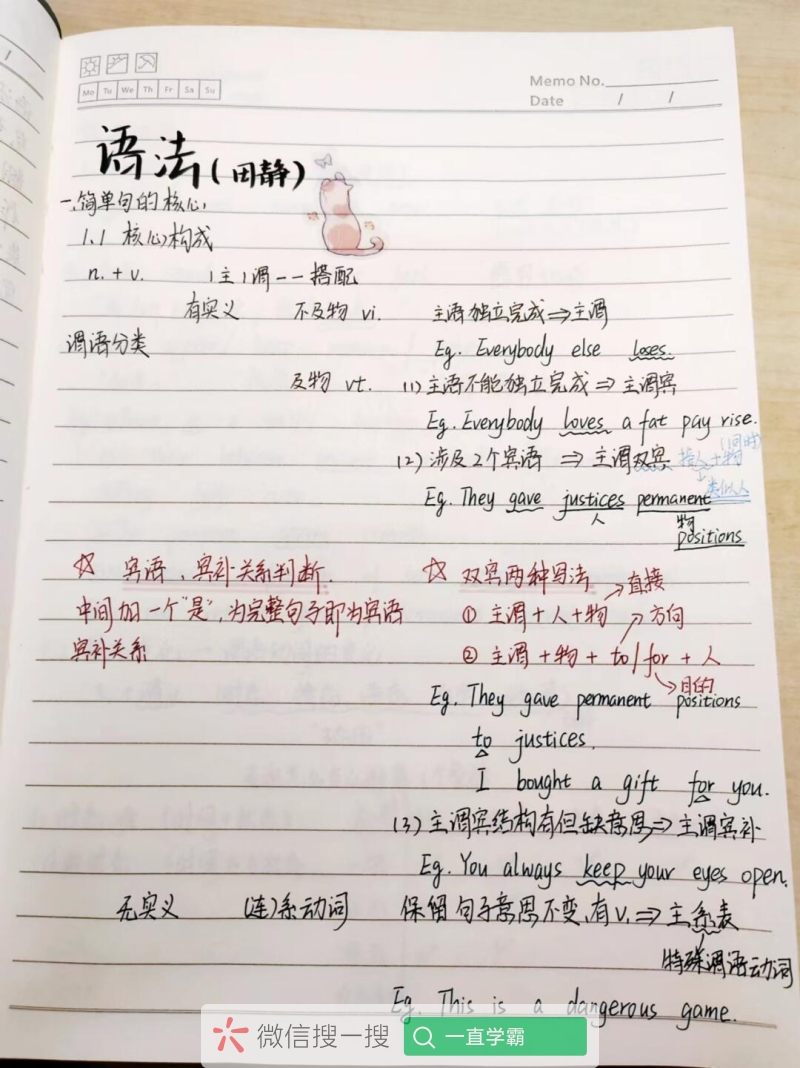 Memo No.
Mo Tu We Th Fr Sa Su
Date / /
语法(田静)
一.简单句的核心
1.1 核心构成
n. + v. 1主1谓——搭配
有实义 不及物 vi. 主语独立完成⇒主谓
谓语分类
Eg. Everybody else loses.
及物 vt. (1)主语不能独立完成⇒主谓宾
Eg. Everybody loves a fat pay rise.
(2)涉及2个宾语 ⇒ 主谓双宾 接人+物 (同时)
类似人
Eg. They gave justices permanent
人 物
positions
☆ 宾语、宾补关系判断.
中间加一个"是",为完整句子即为宾语
宾补关系
☆ 双宾两种写法
→直接
① 主谓+人+物
→方向
② 主谓+物+to/for+人
→目的
Eg. They gave permanent positions
to justices.
I bought a gift for you.
(3)主谓宾结构有但缺意思⇒主谓宾补
Eg. You always keep your eyes open.
无实义 (连)系动词 保留句子意思不变,有v.⇒主系表
特殊谓语动词
Eg. This is a dangerous game.
微信搜一搜 一直学霸